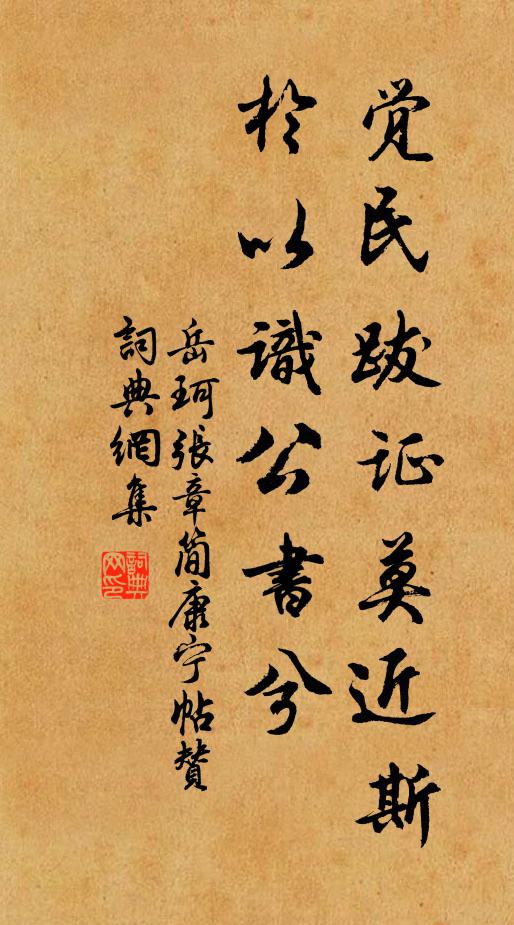 觉民跋证莫近斯
於以識公書兮
岳珂張章简康宁帖贊
詞典網集
詞典
网印